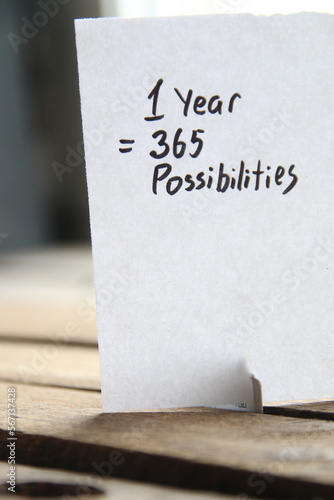 1 Year
= 365
Possibilities
Adobe Stock | #567737428